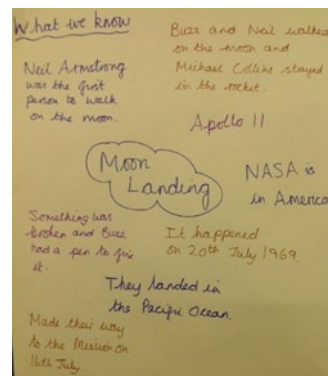 What we know
Neil Armstrong
was the first
person to walk
on the moon.
Buzz and Neil walked
on the moon and
Michael Collins stayed
in the rocket.
Apollo 11
Moon
Landing
NASA is
in America
Something was
broken and Buzz
had a pen to fix
it.
It happened
on 20th July 1969.
They landed in
the Pacific Ocean.
Made their way
to the Mission on
16th July